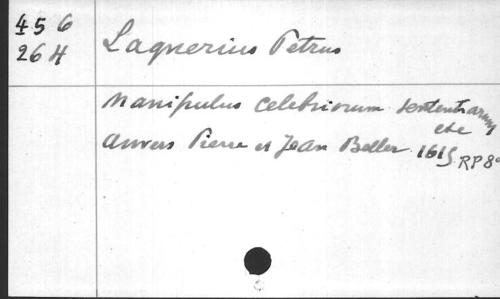 456 Lagnerius Petrus
26 H
Manipulus celebriorum sententiarum
etc
Anvers Pierre et Jean Beller. 1615. RP 8°